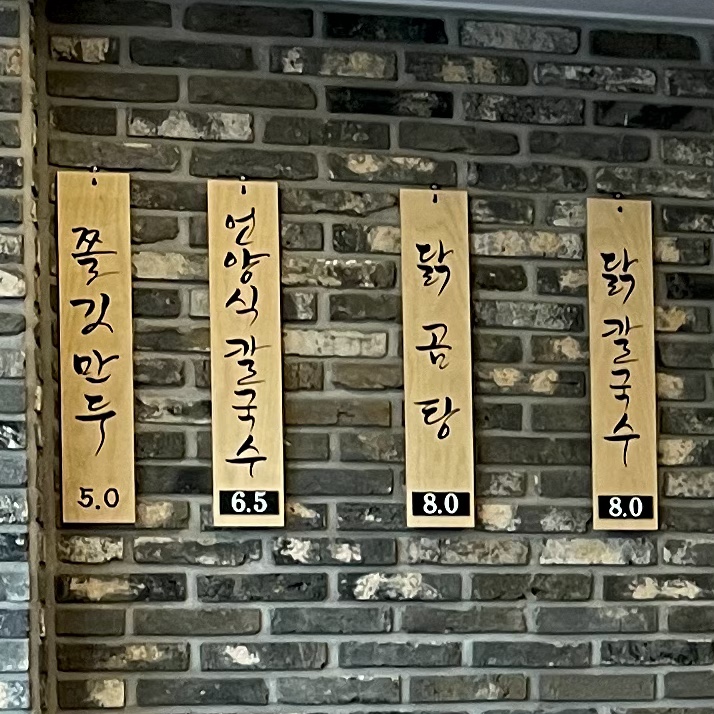 쫄깃만두
5.0
언양식칼국수
6.5
닭곰탕
8.0
닭칼국수
8.0